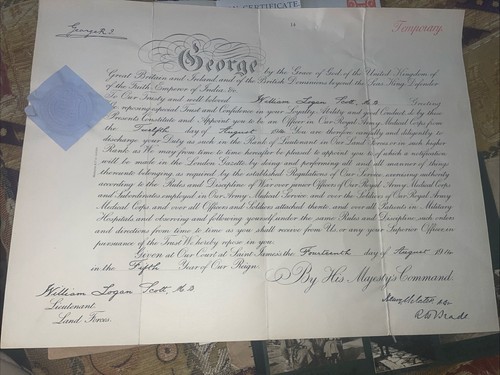 CERTIFICATE
14
George R.I.
Temporary.
George
by the Grace of God, of the United Kingdom of
Great Britain and Ireland, and of the British Dominions beyond the Seas, King, Defender
of the Faith, Emperor of India, &c.
To Our Trusty and well beloved William Logan Scott, M.D. Greeting
We, reposing especial Trust and Confidence in your Loyalty, Fidelity and good Conduct, do by these
Presents Constitute and Appoint you to be an Officer in Our Royal Army Medical Corps from
the Twelfth day of August 19 You are therefore carefully and diligently to
discharge your Duty as such in the Rank of Lieutenant in Our Land Forces or in such higher
Rank as We may from time to time hereafter be pleased to appoint you to, of which a notification
will be made in the London Gazette, by doing and performing all and all manner of things
thereunto belonging as required by the established Regulations of Our Service, exercising authority
according to the Rules and Discipline of War over junior Officers of Our Royal Army Medical Corps
and Subordinates employed in Our Army Medical Service and over the Soldiers of Our Royal Army
Medical Corps and over all Officers and Soldiers attached thereto, and over all Patients in Military
Hospitals, and observing and following yourself under the same Rules and Discipline, such orders
and directions from time to time as you shall receive from Us, or any your Superior Officer, in
pursuance of the Trust We hereby repose in you.
Given at Our Court at Saint James's, the Fourteenth day of August 19
in the Fifth Year of Our Reign.
By His Majesty's Command.
William Logan Scott, M.D.
Lieutenant
Land Forces.
R H Brade